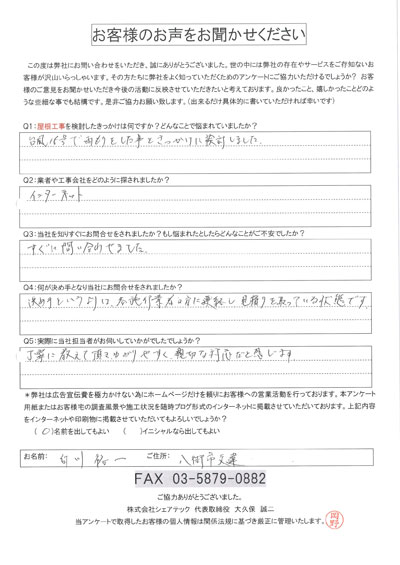 お客様のお声をお聞かせください
この度は弊社にお問い合わせをいただき、誠にありがとうございました。世の中には弊社の存在やサービスをご存知ないお
客様が沢山いらっしゃいます。その方たちに弊社をよく知っていただくためのアンケートにご協力いただけるでしょうか？ お客
様のご意見をお聞かせいただき今後の活動に反映させていただきたいと考えております。良かったこと、嬉しかったことどのよ
うな些細な事でも結構です。是非ご協力お願い致します。(出来るだけ具体的に書いていただければ幸いです)
Q1:屋根工事を検討したきっかけは何ですか？どんなことで悩まれていましたか？
台風15号で雨もりをした事をきっかけに検討しました。
Q2:業者や工事会社をどのように探されましたか？
インターネット
Q3:当社を知りすぐにお問合せをされましたか？もし悩まれたとしたらどんなことがご不安でしたか？
すぐに問い合わせました。
Q4:何が決め手となり当社にお問合せをされましたか？
決め手というよりは、各施行業者4〜5社に連絡し見積りを取っている状態です。
Q5:実際に当社担当者がお伺いしていかがでしたでしょうか？
丁寧に教えて頂きわかりやすく、親切な対応だと感じます
＊弊社は広告宣伝費を極力かけない為にホームページだけを頼りにお客様への営業活動を行っております。本アンケート
用紙またはお客様宅の調査風景や施工状況を随時ブログ形式のインターネットに掲載させていただいております。上記内容
をインターネットや印刷物に掲載させていただいてもよろしいでしょうか？
(○)名前を出してもよい ( )イニシャルなら出してもよい
お名前: ご住所: 八街市文違
FAX 03-5879-0882
ご協力ありがとうございました。
株式会社シェアテック 代表取締役 大久保 誠二
当アンケートで取得したお客様の個人情報は関係法規に基づき厳正に管理いたします。
岡野